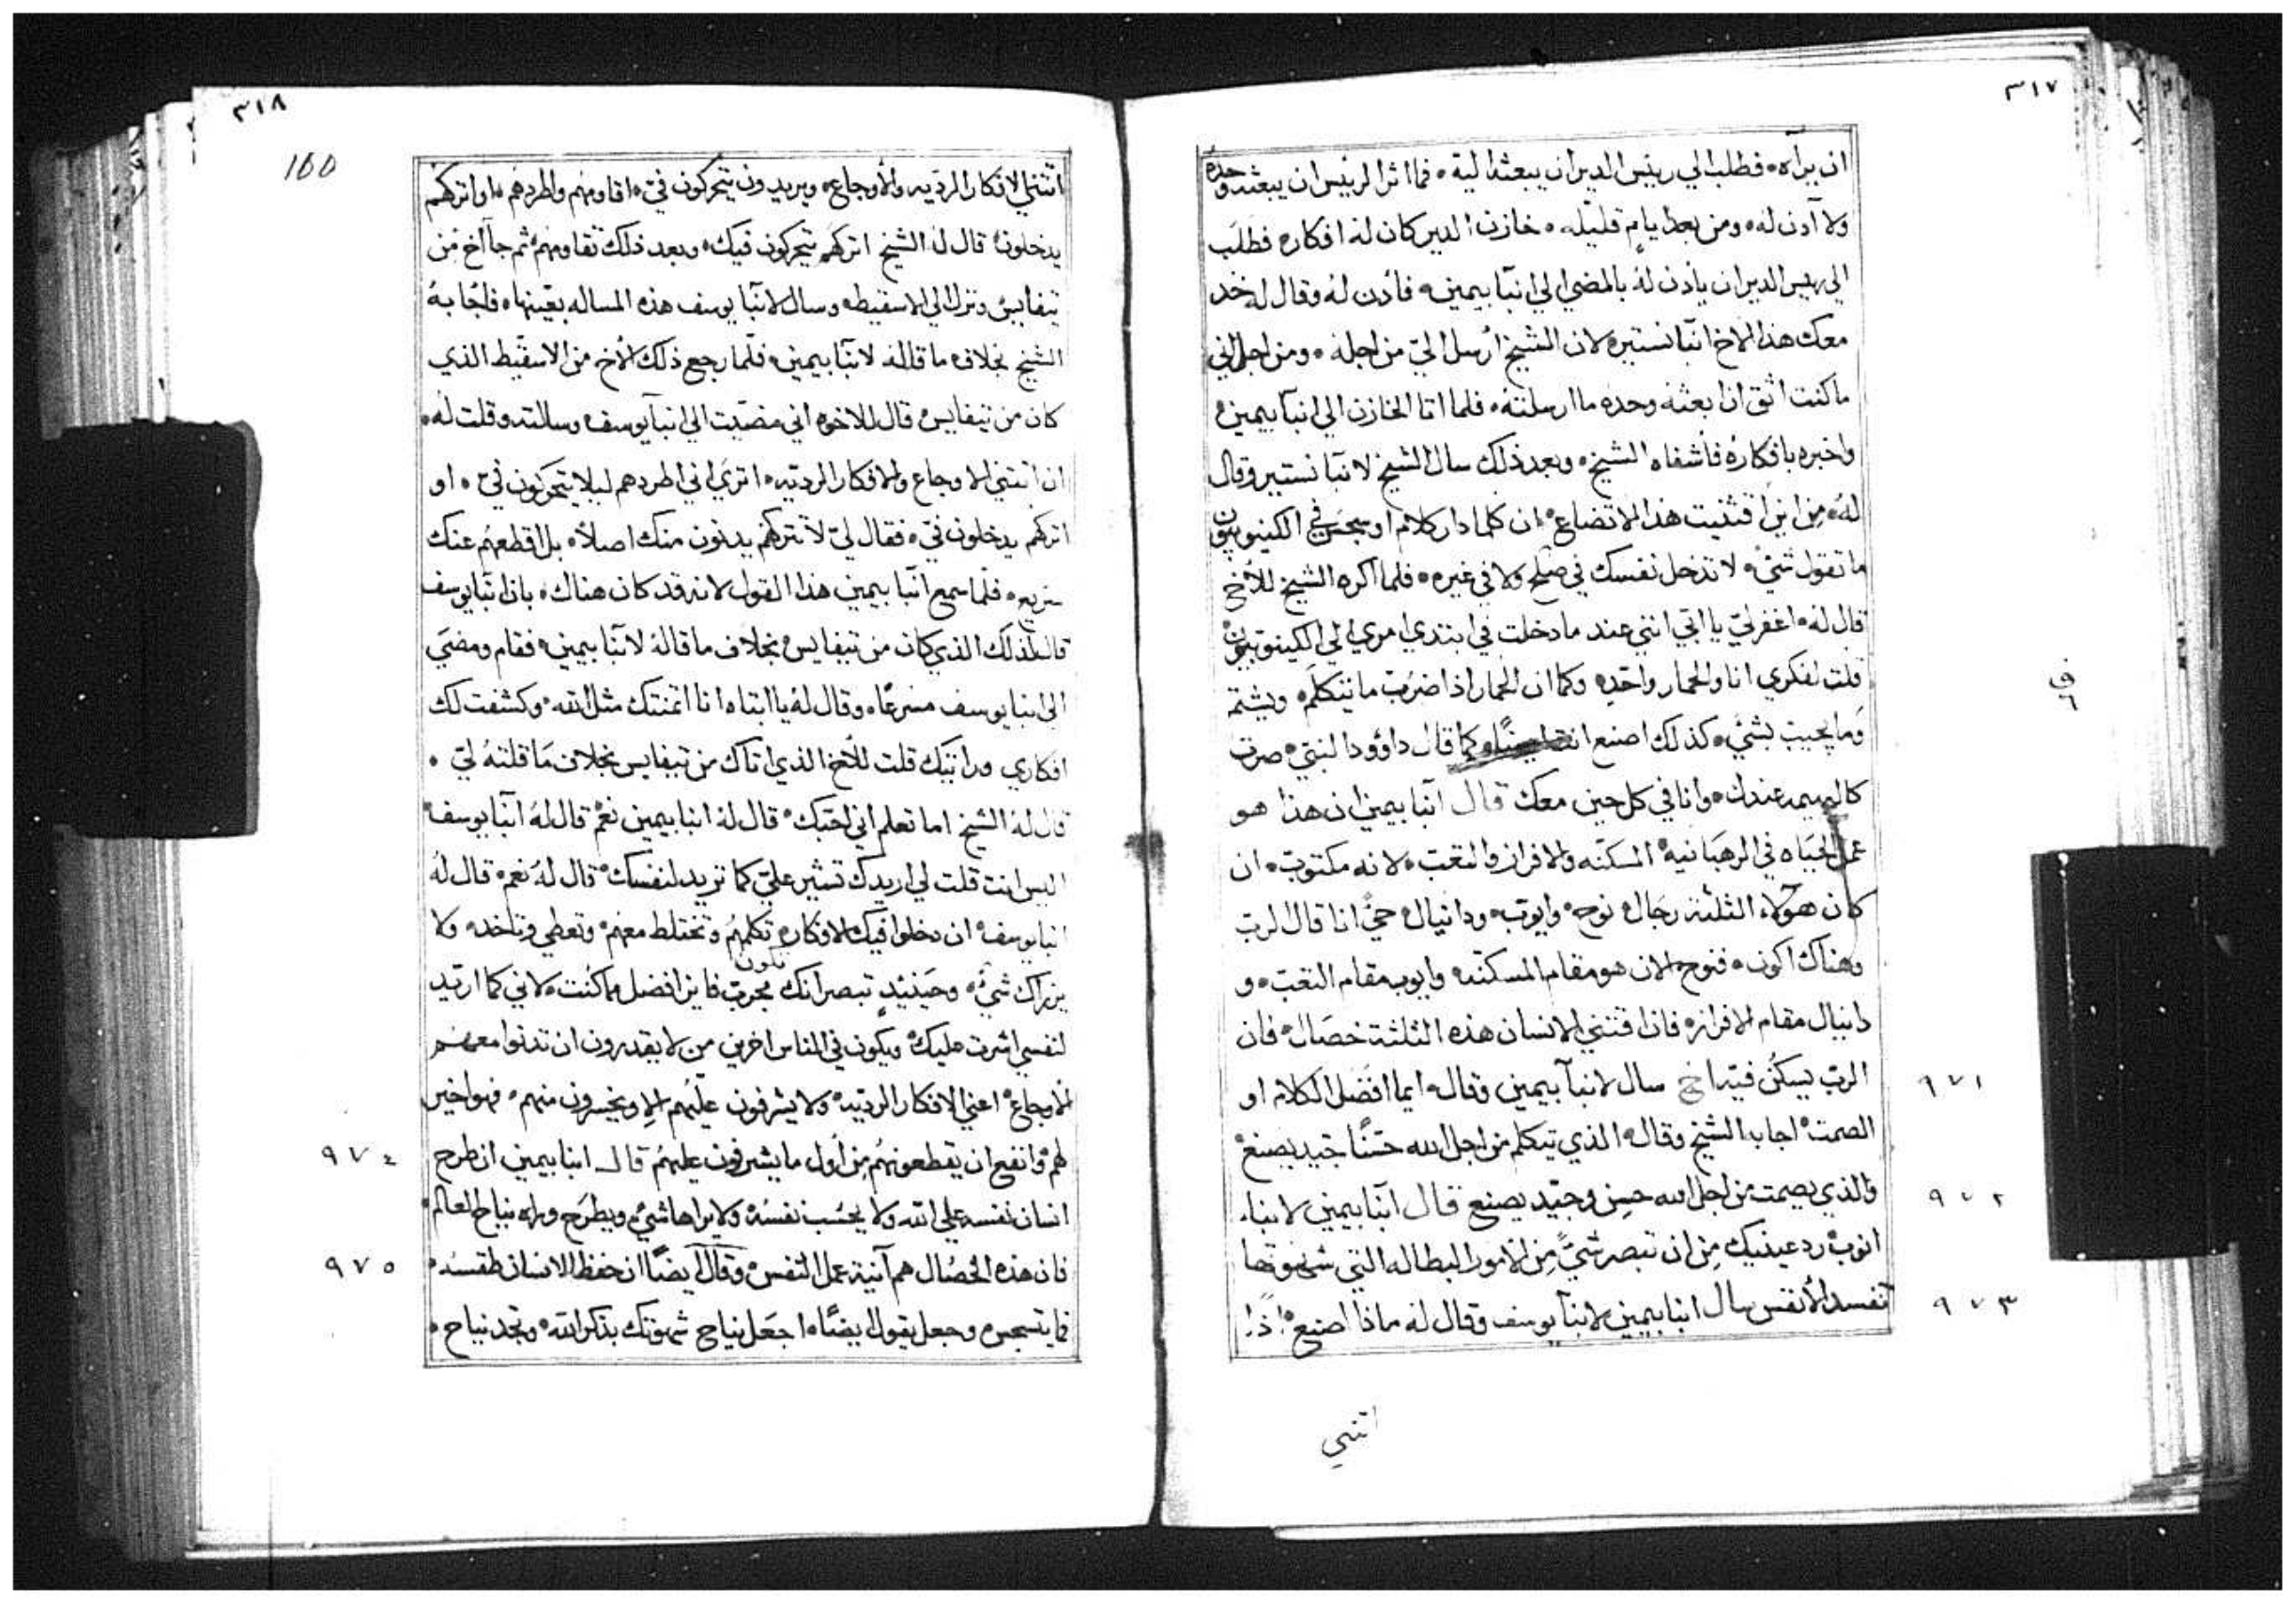 ٣١٧
ان يراه فطلب الي رييس الدير ان يبعثه اليه فما اثر الرييس ان يبعثه وحده
ولا آدن له ومن بعد ايام قليله خازن الدير كان له افكاره فطلب
الي رييس الدير ان يأذن له بالمضي الي انبا بيمين فأدن له وقال له خد
معك هذا الاخ انبا نستير لان الشيخ ارسل الي من اجله ومن اجل اني
ما كنت اثق ان ابعثه وحده ما ارسلته فلما اتا الخازن الي انبا بيمين
واخبره بافكاره فأشفاه الشيخ وبعد ذلك سال الشيخ لانبا نستير وقال
له من اين اقتنيت هذا الاتضاع ان كلما دار كلام او سجس في الكينوبيون
ما تقول شيء لا تدخل نفسك في صلح ولا في غيره فلما اكره الشيخ للأخ
قال له اغفر لي يا ابي انني عند ما دخلت في ابتدي امري الي الكينوبيون
قلت لفكري انا والحمار واحد وكما ان الحمار اذا ضرب ما يتكلم ويشتم
وما يجيب بشي كذلك اصنع انت كما قال داوود النبي صرت
كالبهيمه عندك وانا في كل حين معك قال انبا بيمين ان هذا هو
عمل الحياه في الرهبانيه المسكنه والافراز والتعب لانه مكتوب ان
كان هولاء الثلثة رجال نوح وايوب ودانيال حي انا قال الرب
وهناك اكون فنوح الان هو مقام المسكنه وايوب مقام التعب و
دانيال مقام الافراز فاذا اقتني الانسان هذه الثلثة خصال فان
الرب يسكن فيه اخ سال لانبا بيمين وقال ايما افضل الكلام او
٩٧١
الصمت اجاب الشيخ وقال الذي يتكلم من اجل الله حسنًا جيد يصنع
والذي يصمت من اجل الله حسن وجيد يصنع قال انبا بيمين لانبا
٩٧٢
انوب رد عينيك من ان تبصر شي من الامور البطاله التي شهوتها
تفسد الأنفس سال انبا بيمين لانبا يوسف وقال له ماذا اصنع اذا
٩٧٣
ف
٦
اتتني
٣١٨
155
اتتني الافكار الرديه والأوجاع ويريدون يتحركون في اقاومهم واطردهم او اتركهم
يدخلون قال له الشيخ اتركهم يتحركون فيك وبعد ذلك تقاومهم ثم جا آخ من
تيفاييس ونزل الي الاسقيط وسال لانبا يوسف هذه المساله بعينها فأجابه
الشيخ بخلاف ما قاله لانبا بيمين فلما رجع ذلك الأخ من الاسقيط الذي
كان من تيفاييس قال للاخوه اني مضيت الي انبا يوسف وسالته وقلت له
ان اتتني الاوجاع والافكار الرديه اترى اني اطردهم ليلا يتحركون في او
اتركهم يدخلون في فقال لي لا تتركهم يدنون منك اصلاً بل اقطعهم عنك
سريع فلما سمع انبا بيمين هذا القول لانه قد كان هناك بان انبا يوسف
قال لذلك الذي كان من تيفاييس بخلاف ما قاله لانبا بيمين فقام ومضي
الي انبا يوسف مسرعًا وقال له يا ابتاه انا اتمنتك مثل الله وكشفت لك
افكاري ورايتك قلت للأخ الذي اتاك من تيفاييس بخلاف ما قلته لي
قال له الشيخ اما تعلم اني احبك قال له انبا بيمين نعم قال له انبا يوسف
اليس انت قلت لي اريدك تشير علي كما تريد لنفسك قال له نعم قال له
انبا يوسف ان دخلوا فيك الافكار تكلمهم وتختلط معهم وتعطي وتاخد ولا
تكون
يزراك شيء وحينيدٍ تبصر انك مجرب فايز افضل مما كنت لاني كما اريد
لنفسي اشرت عليك ويكون في الناس اخرين من لا يقدرون ان تدنوا معهم
الاوجاع اعني الافكار الرديه ولا يشرفون عليهم الا ويخسرون منهم فهوا خير
لهم وانفع ان يقطعونهم من اول ما يشرفون عليهم قال انبا بيمين ان طرح
٩٧٤
انسان نفسه علي الله ولا يحسب نفسه ولا يراها شي ويطرح وراه نياح العالم
فان هذه الخصال هم آنية عمل النفس وقال ايضًا ان حفظ الانسان طقسه
٩٧٥
فما يتسجس وجعل يقول ايضًا اجعل نياح شهوتك بذكر الله وتجد نياح